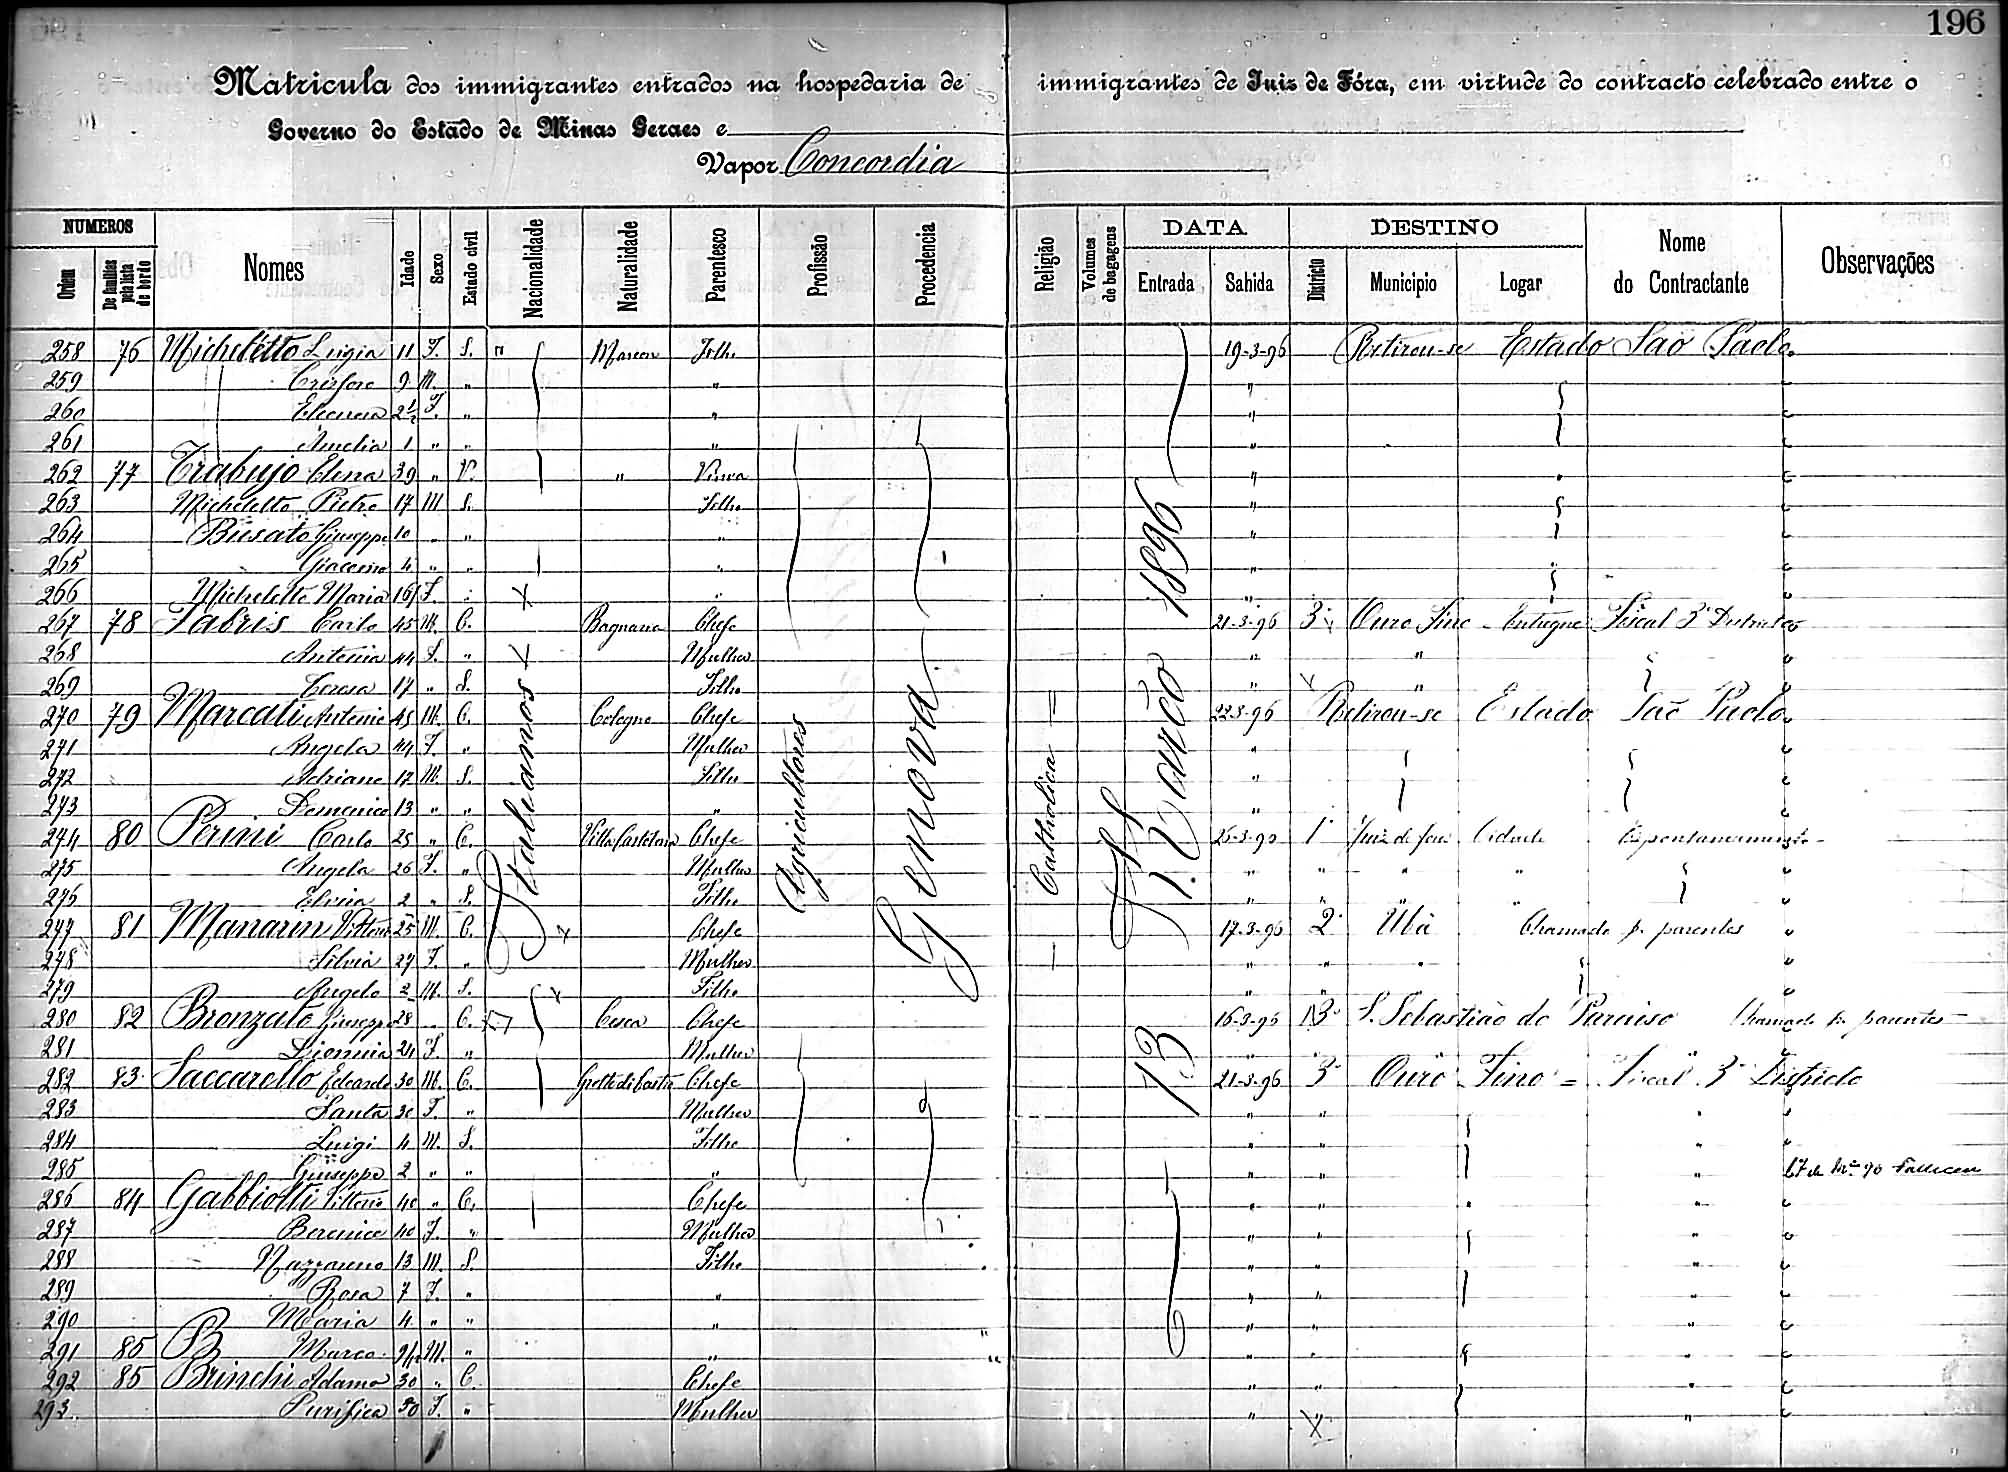 196
Matricula dos immigrantes entrados na hospedaria de immigrantes de Juiz de Fóra, em virtude do contracto celebrado entre o
Governo do Estado de Minas Geraes e
Vapor Concordia
NUMEROS DATA DESTINO
Ordem De familias pela lista de bordo Nomes Idade Sexo Estado civil Nacionalidade Naturalidade Parentesco Profissão Procedencia Religião Volumes de bagagens Entrada Sahida Districto Municipio Logar Nome do Contractante Observações
Italianos Agricultores Genova Catholica 13 Março 1896
258 76 Micheletto Luigia 11 F. S. " Filho 19-3-96 Retirou-se Estado São Paolo
259 9 M. " " "
260 2 1/2 F. " " "
261 Amelia 1 " " " "
262 77 Trabujo Elena 39 " V. " Viuva "
263 Micheletto Pietro 17 M S. Filho "
264 Busato Giuseppe 10 " " " "
265 Giacomo 4 " " " "
266 Micheletto Maria 16 F. " " "
267 78 Fabris Carlo 45 M. C. Chefe 21-3-96 3 Ouro Fino Fiscal 3º Districto
268 Antonia 44 F. " Mulher " "
269 Teresa 17 " S. Filho " "
270 79 Marcati Antonio 45 M. C. Cologna Chefe 22-3-96 Retirou-se Estado São Paolo
271 Angela 44 F. " Mulher "
272 Adriano 17 M. S. Filho "
273 Domenico 13 " " " "
274 80 Perini Carlo 25 " C. Chefe 1º Juiz de Fora Cidade Espontaneamente
275 Angela 26 F. " Mulher " " " "
276 Elvira 2 " S. Filho " " " "
277 81 Manarin Vittorio 25 M. C. Chefe 17-3-96 2º Ubá Chamado p. parentes
278 Silvia 27 F. " Mulher " " "
279 Angelo 2 M. S. Filho " "
280 82 Bronzato Giuseppe 28 " C. Chefe 16-3-96 3º S. Sebastião do Paraiso Chamado p. parentes
281 24 F. " Mulher " "
282 83 Saccarello Edoardo 30 M. C. Chefe 21-3-96 3º Ouro Fino = Fiscal 3º Districto
283 Santa 30 F. " Mulher " " "
284 Luigi 4 M. S. Filho " " "
285 Giuseppe 2 " " " " " " Falleceu
286 84 Gabbiotti Vittorio 40 " C. Chefe " " " "
287 Berenice 40 F. " Mulher " " "
288 Nazzareno 13 M. S. Filho " " "
289 Rosa 7 F. " " " " "
290 Maria 4 " " " " " "
291 85 B Marco M. " " " " "
292 85 Brinchi Adamo 30 " C. Chefe " " "
293 Purifica 30 F. " Mulher " " "